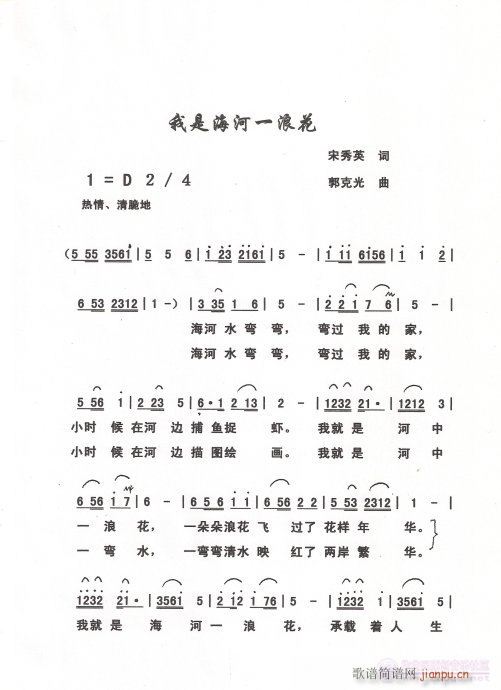 我是海河一浪花
宋秀英 词
1 = D 2 / 4
郭克光 曲
热情、清脆地
( 5 55 3561 | 5 5 6 | 1 23 2161 | 5 - | 1 11 6156 | 1 1 2 |
6 53 2312 | 1 - ) | 3 35 1 6 | 5 - | 2 2 1 7 6 | 5 - |
海河 水 弯 弯， 弯过 我 的 家，
海河 水 弯 弯， 弯过 我 的 家，
5 56 1 | 2 23 5 | 6· 1 2 13 | 2 - | 1232 21· | 1212 3 |
小时 候 在河 边 捕 鱼捉 虾。 我就 是 河 中
小时 候 在河 边 描 图绘 画。 我就 是 河 中
6 56 1 7 | 6 - | 6 5 6 1 1 | 6 56 2 2 | 5 53 2312 | 1 - |
一 浪 花， 一朵朵浪花 飞 过了 花样 年 华。
一 弯 水， 一弯弯清水 映 红了 两岸 繁 华。
1232 21· | 3561 5 | 2 12 1 76 | 5 - | 1232 1 | 3561 5 |
我就 是 海 河 一 浪 花， 承载 着 人 生
歌谱简谱网
jianpu.cn